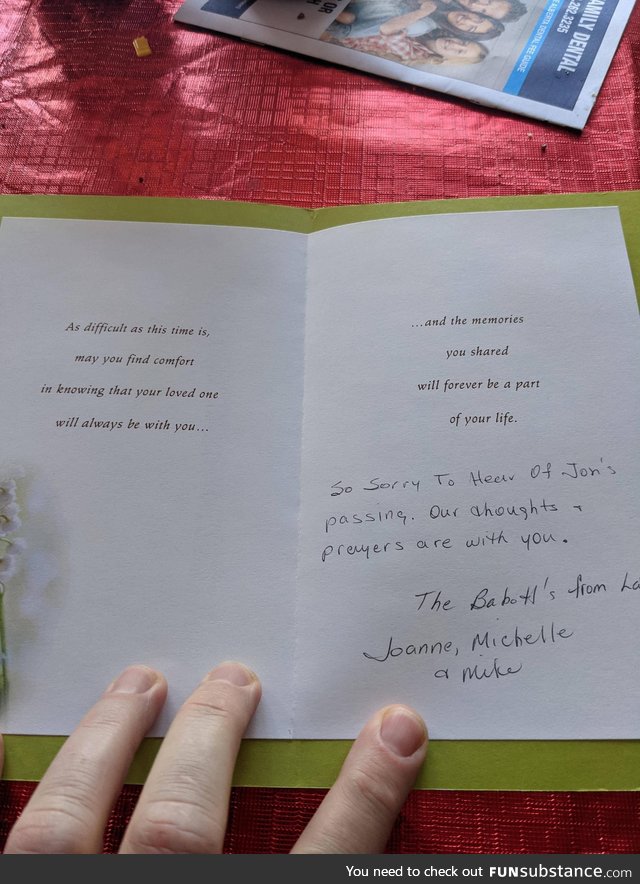 FAMILY DENTAL
262.3235
As difficult as this time is,
may you find comfort
in knowing that your loved one
will always be with you...
...and the memories
you shared
will forever be a part
of your life.
So Sorry To Hear Of Jon's
passing. Our thoughts +
prayers are with you.
The Babott's from
Joanne, Michelle
& Mike
You need to check out FUNsubstance.com